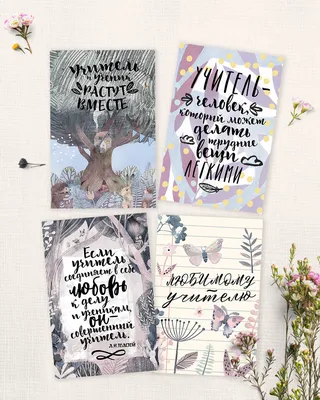 учитель
и ученик
растут
вместе
УЧИТЕЛЬ-
человек,
который может
делать
трудные
вещи
легкими.
Если
учитель
соединяет в себе
любовь
к делу
и ученикам,
он-
совершенный
учитель.
Л.Н. Толстой
любимому
учителю